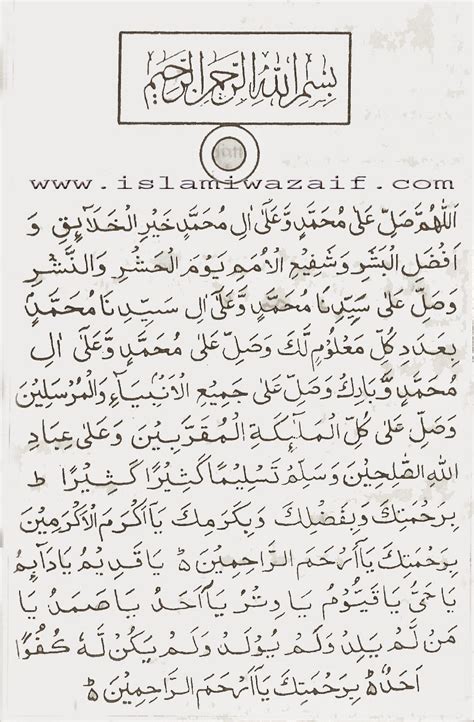 بِسْمِ اللهِ الرَّحْمٰنِ الرَّحِيْمِ
www.islamiwazaif.com
اَللّٰهُمَّ صَلِّ عَلٰى مُحَمَّدٍ وَّعَلٰٓى اٰلِ مُحَمَّدٍ خَيْرِ الْخَلَآئِقِ وَ
اَفْضَلِ الْبَشَرِ وَشَفِيْعِ الْاُمَمِ يَوْمَ الْحَشْرِ وَالنَّشْرِ
وَصَلِّ عَلٰى سَيِّدِنَا مُحَمَّدٍ وَّعَلٰٓى اٰلِ سَيِّدِنَا مُحَمَّدٍ
بِعَدَدِ كُلِّ مَعْلُوْمٍ لَّكَ وَصَلِّ عَلٰى مُحَمَّدٍ وَّعَلٰٓى اٰلِ
مُحَمَّدٍ وَّبَارِكْ وَصَلِّ عَلٰى جَمِيْعِ الْاَنْۢبِيَآءِ وَالْمُرْسَلِيْنَ
وَصَلِّ عَلٰى كُلِّ الْمَلٰٓئِكَةِ الْمُقَرَّبِيْنَ وَعَلٰى عِبَادِ
اللهِ الصّٰلِحِيْنَ وَسَلِّمْ تَسْلِيْمًا كَثِيْرًا كَثِيْرًا ط
بِرَحْمَتِكَ وَبِفَضْلِكَ وَبِكَرَمِكَ يَآ اَكْرَمَ الْاَكْرَمِيْنَ
بِرَحْمَتِكَ يَآ اَرْحَمَ الرَّاحِمِيْنَ يَا قَدِيْمُ يَا دَآئِمُ
يَا حَيُّ يَا قَيُّوْمُ يَا وِتْرُ يَآ اَحَدُ يَا صَمَدُ يَا
مَنْ لَّمْ يَلِدْ وَلَمْ يُوْلَدْ وَلَمْ يَكُنْ لَّهٗ كُفُوًا
اَحَدٌ بِرَحْمَتِكَ يَآ اَرْحَمَ الرَّاحِمِيْنَ